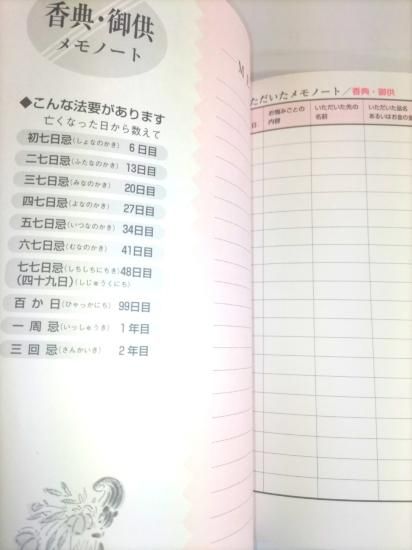 香典・御供
メモノート
◆こんな法要があります
亡くなった日から数えて
初七日忌(しょなのかき) 6日目
二七日忌(ふたなのかき) 13日目
三七日忌(みなのかき) 20日目
四七日忌(よなのかき) 27日目
五七日忌(いつなのかき) 34日目
六七日忌(むなのかき) 41日目
七七日忌(しちしちにちき) 48日目
(四十九日)(しじゅうくにち)
百か日(ひゃっかにち) 99日目
一周忌(いっしゅうき) 1年目
三回忌(さんかいき) 2年目
M
ただいたメモノート/香典・御供
日
お悔みごとの
内容
いただいた先の
名前
いただいた品名
あるいはお金の